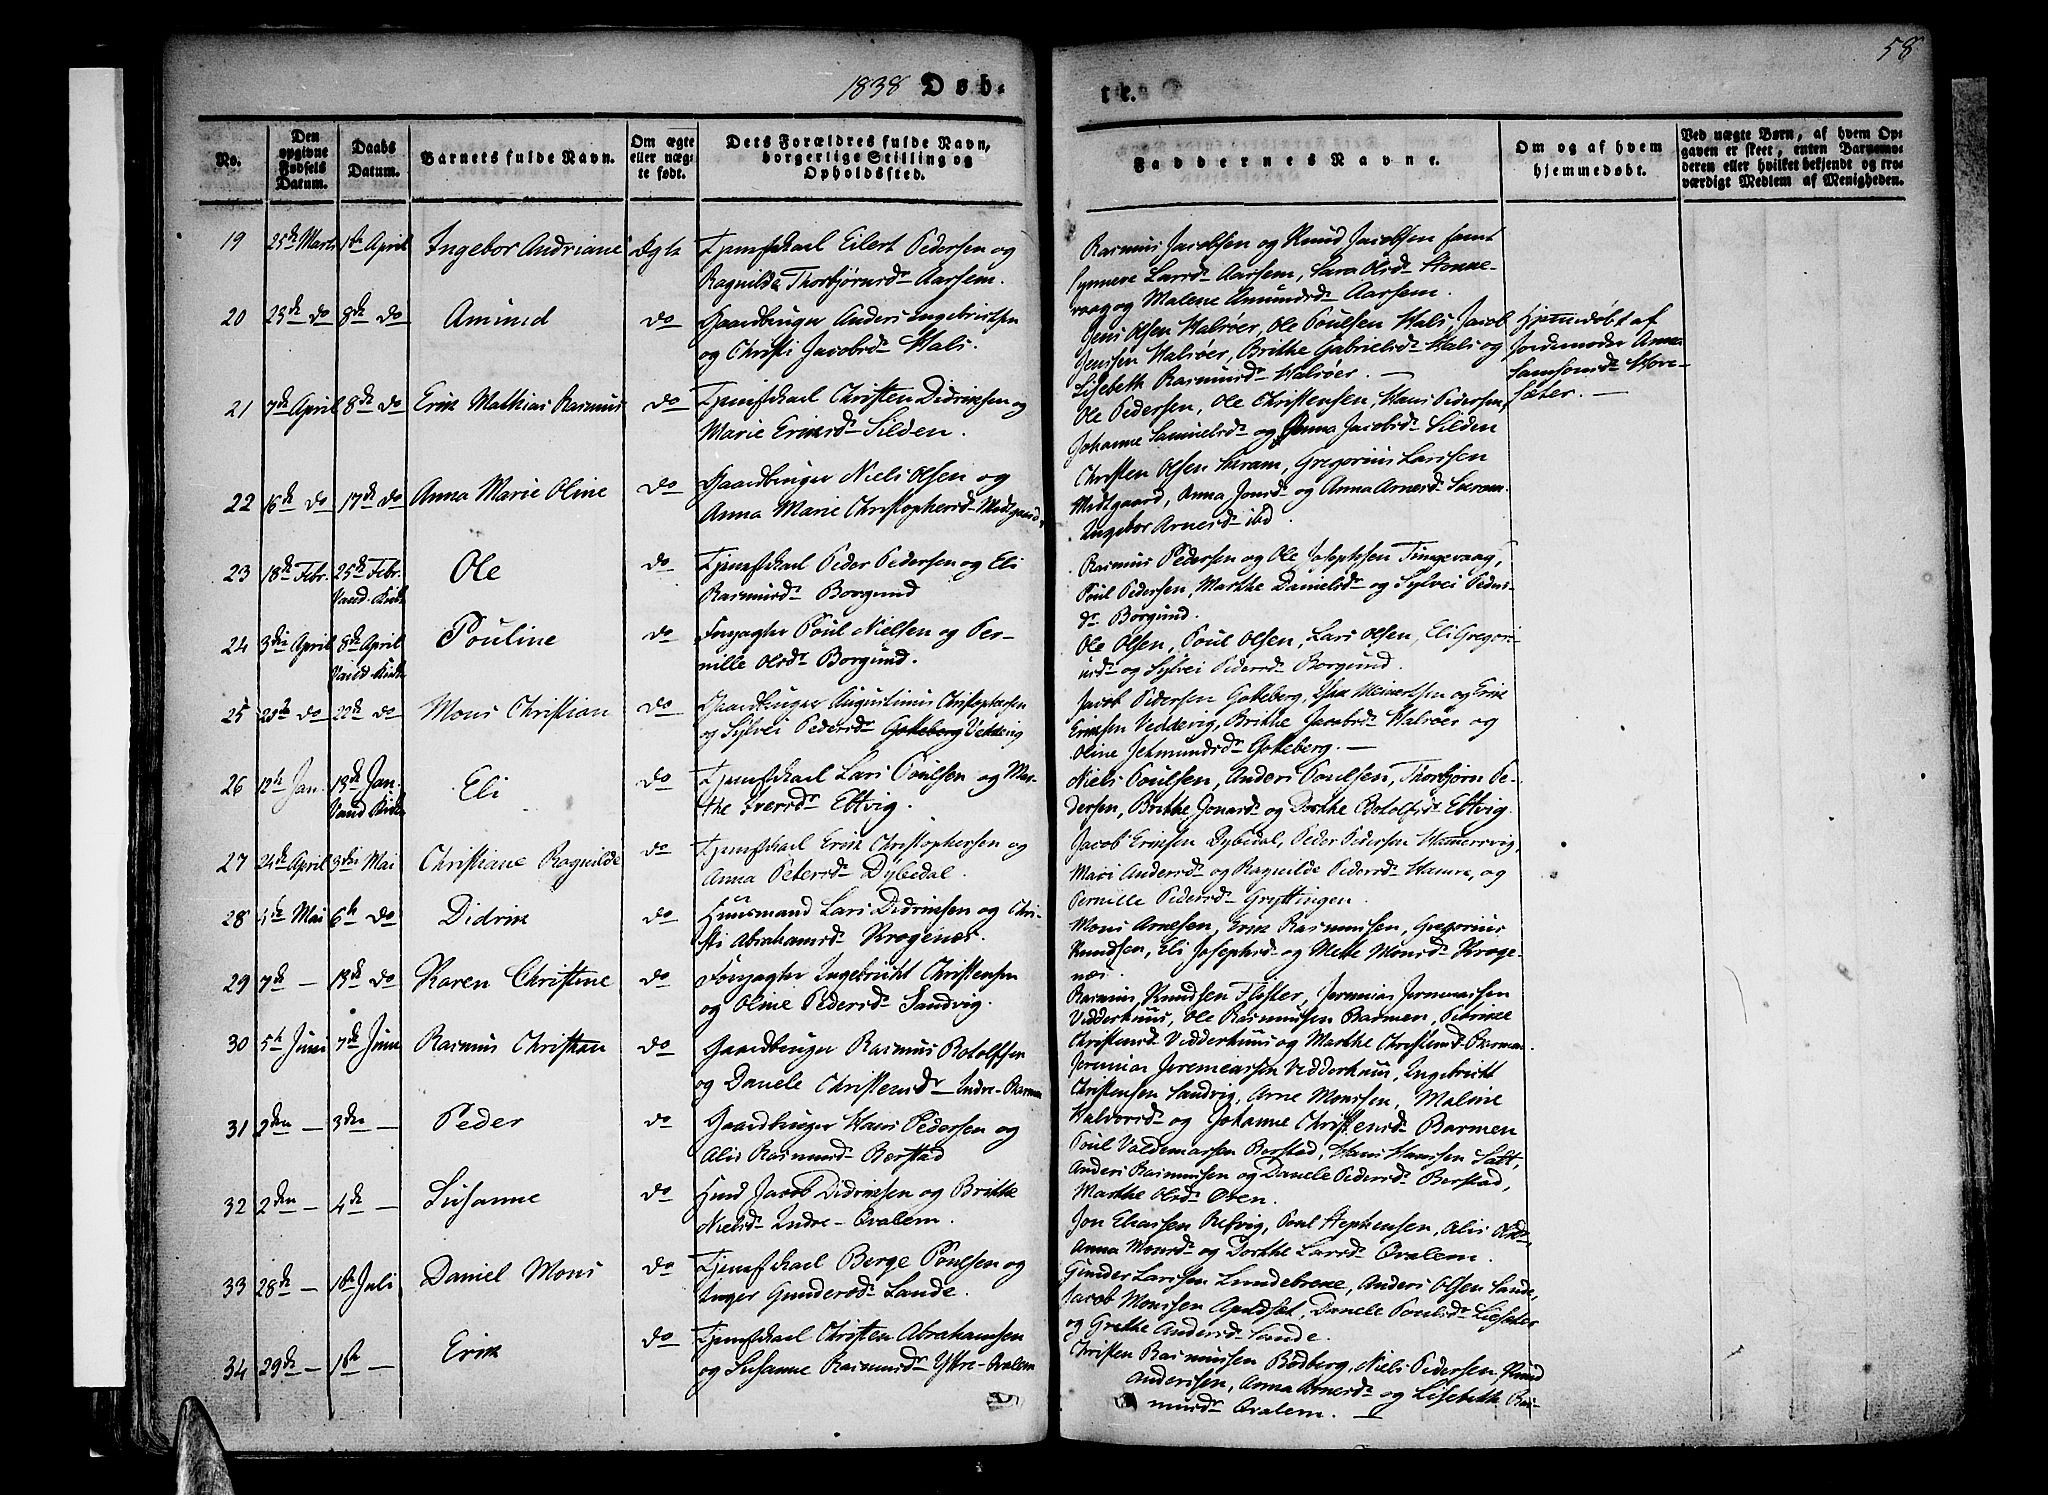 58
1838 Døb-
te.
No.
Den opgivne Fødsels Datum.
Daabs Datum.
Barnets fulde Navn.
Om ægte eller uæg-te født.
Dets Forældres fulde Navn, borgerlige Stilling og Opholdssted.
Faddernes Navne.
Om og af hvem hjemmedøbt.
Ved uægte Børn, af hvem Op-gaven er skeet, enten Barnemo-deren eller hvilket bekjendt og tro-værdigt Medlem af Menigheden.
19 25de Marts 1ste April Ingebor Andriane Ægte Tjenestkarl Eilert Pedersen og
Ragnilde Thorbjørnsdr Aarsem.
Rasmus Jacobsen og Knud Jacobsen samt
Synneve Larsdr Aarsem, Sara Olsdr Honne-
vaag og Malene Amundsdr Aarsem.
20 23de do 8de do Amund do Gaardbruger Anders Ingebrictsen
og Christi Jacobsdr Hals.
Jens Olsen Halsøer, Ole Poulsen Hals, Jacob
Jenssen Halsøer, Brithe Gabrielsdr Hals og
Lisebeth Rasmusdr Halsøer. —
Hjemedøbt af
Jordemoder Anne
Samsonsdr Hove-
sæter. —
21 7de April 8de do Erik Mathias Rasmus do Tjenestkarl Christen Didriksen og
Marie Eriksdr Silden.
Ole Pedersen, Ole Christensen, Hans Pedersen,
Johanne Samuelsdr og Anna Jacobsdr Silden
22 16de do 17de do Anna Marie Oline do Gaardbruger Niels Olsen og
Anna Marie Christophersdr Medtgaard.
Christen Olsen, Gregorius Larssen
Medtgaard, Anna Jonsdr og Anna Arnesdr
Ingebor Arnesdr ibd.
23 18de Febr. 25de Febr. Ole do Tjenestkarl Peder Pedersen og Eli
Vand. Kirke
Rasmusdr Borgund
Rasmus Pedersen og Ole Josephsen Tungevaag,
Poul Pedersen, Marthe Danielsdr og Sylvei Peders-
dr Borgund.
24 3die April 8de April Pouline do Forpagter Poul Nielsen og Per-
Vand. Kirke
nille Olsdr Borgund.
Ole Olsen, Poul Olsen, Lars Olsen, Eli Gregori-
usdr og Sylvei Pedersdr Borgund.
25 20de do 22de do Mons Christian do Gaardbruger Augustinus Christophersen
og Sylvei Pedersdr Gotteberg Veddevig
Jacob Pedersen Gotteberg, Isak Meinertsen og Erik
Eriksen Veddevig, Brithe Jacobsdr Halsøer og
Oline Jetmundsdr Gotteberg. —
26 12te Jan. 13de Jan. Eli do Tjenestkarl Lars Poulsen og Mar-
Vand Kirke
the Iversdr Ettvig.
Niels Poulsen, Anders Poulsen, Thorbjørn Pe-
dersen, Brithe Jonasdr og Dorthe Botolfsdr Ettvig.
27 24de April 3die Mai Christiane Ragnilde do Tjenestkarl Erik Christophersen og
Anna Petersdr Dybedal.
Jacob Eriksen Dybedal, Peder Pedersen Hamersvig,
Mari Andersdr og Ragnilde Pedersdr Hamre, og
Pernille Pedersdr Gryttingen.
28 4de Mai 6te do Didrik do Huusmand Lars Didriksen og Chri-
sti Abrahamsdr Krogenæs.
Mons Arnesen, Erik Rasmussen, Gregorius
Knudsen, Eli Josephsdr og Mette Monsdr Kroge-
næs.
29 7de — 13de do Karen Christine do Forpagter Ingebricht Christensen
og Oline Pedersdr Sandvig.
Rasmus Knudsen Flister, Jeremias Jeremiassen
Vedderhuus, Ole Rasmussen Barmen, Petrikke
Christensdr Vedderhuus og Marthe Christensdr Barmen
30 5te Juni 7de Juni Rasmus Christian do Gaardbruger Rasmus Botolfsen
og Danele Christensdr Indre-Barmen
Jeremias Jeremiassen Vedderhuus, Ingebricht
Christensen Sandvig, Arne Monssen, Maline
Halvorsdr og Johanne Christensdr Barmen
31 2den — 3die — Peder do Gaardbruger Hans Pedersen og
Alis Rasmusdr Berstad
Poul Valdemarsen Berstad, Hans Hanssen Salt,
Anders Rasmussen og Danele Pedersdr Berstad,
Marthe Olsdr Oven.
32 2den — 4de — Susanne do Huusmd Jacob Didriksen og Brithe
Nielsdr Indre-Qvalem.
Jon Eliassen Refvig, Poul Stephensen, Alis Olsdr,
Anna Monsdr og Dorthe Larsdr Qvalem.
33 28de — 1ste Juli Daniel Mons do Tjenestkarl Berge Poulsen og
Inger Gundersdr Sande.
Gunder Larssen Lundebrekke, Anders Olsen Sande,
Jacob Monssen Apaldsæt, Danele Poulsdr Lisæter
og Grethe Andersdr Sande.
34 29de — 1ste — Erik do Tjenestkarl Christen Abrahamsen
og Susanne Rasmusdr Yttre-Qvalem
Christen Rasmussen Bødberg, Niels Pedersen, Knud
Anderssen, Anna Arnesdr og Lisebeth Ras-
musdr Qvalem. —